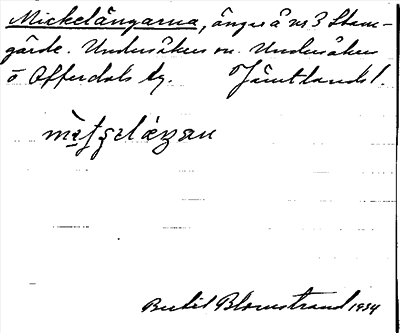 Mickelängarna, ängar å nr 3 Stam-
gärde. Undersåkers sn. Undersåkers
o Offerdals tg. Jämtlands l.
Bertil Blomstrand 1934